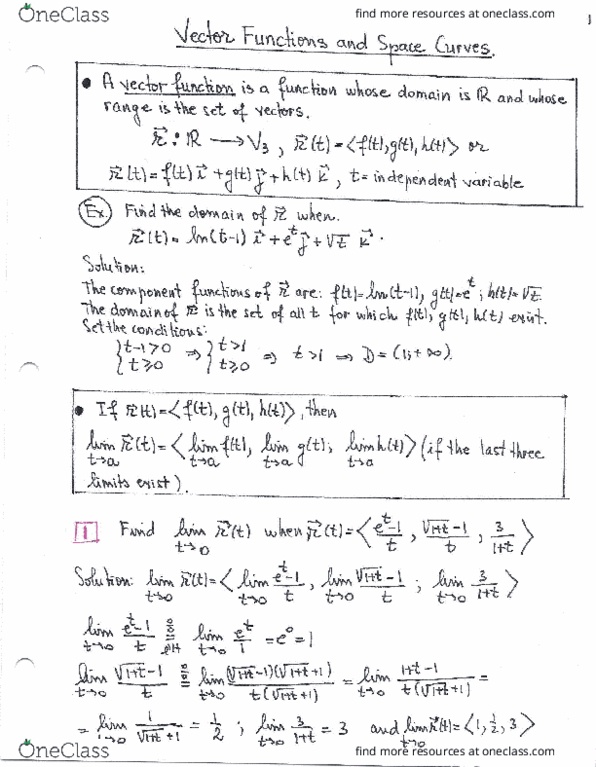 OneClass
find more resources at oneclass.com
1
Vector Functions and Space Curves.
• A vector function is a function whose domain is ℝ and whose
range is the set of vectors.
r⃗ : ℝ → V₃ , r⃗(t) = ⟨f(t), g(t), h(t)⟩ or
r⃗(t) = f(t) i⃗ + g(t) j⃗ + h(t) k⃗ , t = independent variable
Ex. Find the domain of r⃗ when.
r⃗(t) = ln(t-1) i⃗ + e^t j⃗ + √t k⃗ .
Solution:
The component functions of r⃗ are: f(t)=ln(t-1), g(t)=e^t ; h(t)=√t.
The domain of r⃗ is the set of all t for which f(t), g(t), h(t) exist.
Set the conditions:
{ t-1>0 ⇒ { t>1 ⇒ t>1 ⇒ D = (1; +∞).
{ t≥0 { t≥0
• If r⃗(t) = ⟨f(t), g(t), h(t)⟩, then
lim t→a r⃗(t) = ⟨ lim t→a f(t), lim t→a g(t); lim t→a h(t) ⟩ (if the last three
limits exist).
1 Find lim t→0 r⃗(t) when r⃗(t) = ⟨ (e^t-1)/t , (√(1+t) -1)/t , 3/(1+t) ⟩
Solution: lim t→0 r⃗(t) = ⟨ lim t→0 (e^t-1)/t , lim t→0 (√(1+t) -1)/t ; lim t→0 3/(1+t) ⟩
lim t→0 (e^t-1)/t =(0/0, l'H) lim t→0 e^t/1 = e^0 = 1
lim t→0 (√(1+t) -1)/t =(0/0) lim t→0 (√(1+t) -1)(√(1+t) +1)/t(√(1+t) +1) = lim t→0 (1+t-1)/t(√(1+t) +1) =
= lim t→0 1/(√(1+t) +1) = 1/2 ; lim t→0 3/(1+t) = 3 and lim t→0 r⃗(t) = ⟨1, 1/2, 3⟩
OneClass
find more resources at oneclass.com